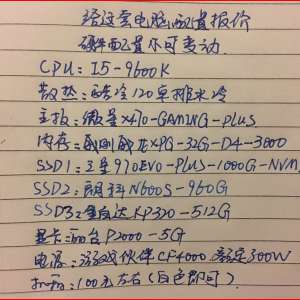 给这套电脑配置报价
硬件配置不可变动.
CPU: I5-9600K
散热: 酷冷120单排水冷
主板: 微星X470-GAMING-PLUS
内存: 威刚威龙XPG-32G-D4-3000
SSD1: 三星970EVO-PLUS-1000G-NVM
SSD2: 朗科N600S-960G
SSD3: 金百达KP320-512G
显卡: 丽台P2000-5G
电源: 游戏伙伴CF4000 额定300W
机箱: 100元左右(白色即可).